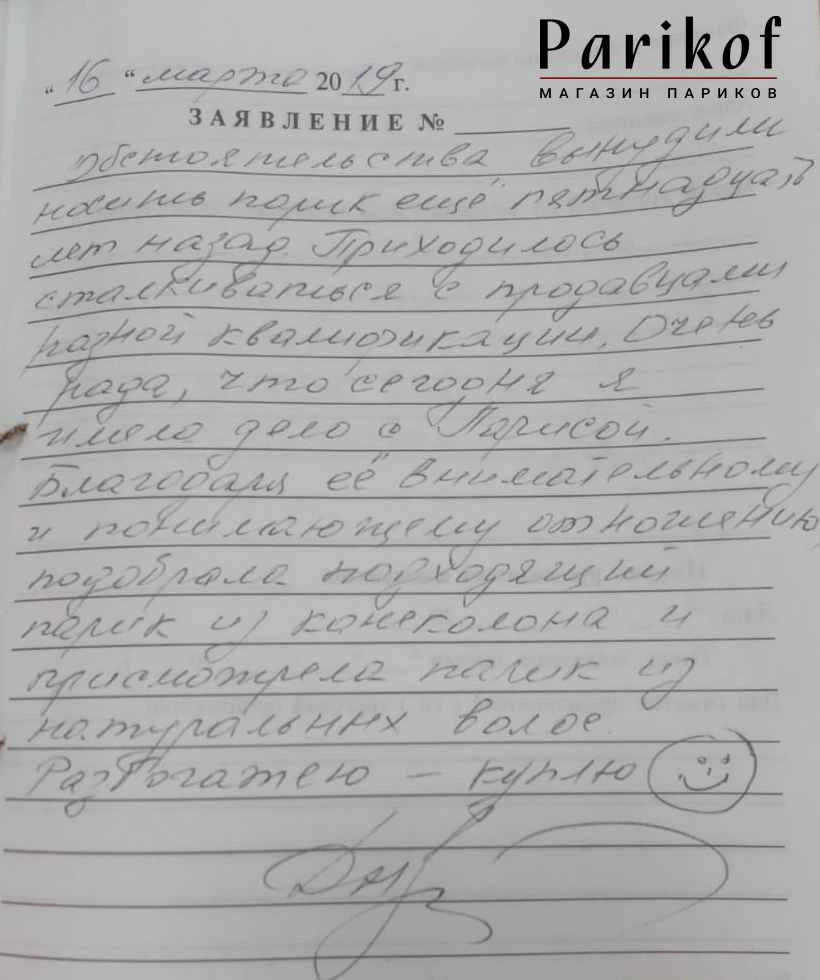 Parikof
МАГАЗИН ПАРИКОВ
"16" марта 2019 г.
ЗАЯВЛЕНИЕ №
Обстоятельства вынудили
носить парик ещё пятнадцать
лет назад. Приходилось
сталкиваться с продавцами
разной квалификации. Очень
рада, что сегодня я
имела дело с Ларисой.
Благодаря её внимательному
и понимающему отношению
подобрала подходящий
парик из канеколона и
присмотрела парик из
натуральных волос.
Разбогатею – куплю